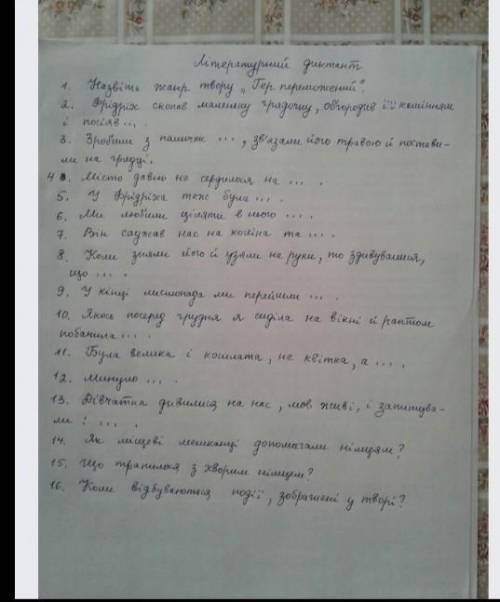 Літературний диктант
1. Назвіть жанр твору „Гер переможений".
2. Фрідріх скопав маленьку грядочку, обгородив її камінням
і посіяв ... .
3. Зробили з паличок ..., зв'язали його травою й постави-
ли на грядці.
4. Місто давно не сердилося на ... .
5. У Фрідріха теж була ... .
6. Ми любили ціляти в нього ... .
7. Він саджав нас на коліна та ... .
8. Коли зняли його й узяли на руки, то здивувалися,
що ... .
9. У кінці листопада ми перейшли ... .
10. Якось посеред грудня я сиділа на вікні й раптом
побачила ... .
11. Була велика і косм̶лата, не квітка, а ... .
12. Минуло ... .
13. Дівчатка дивилися на нас, мов живі, і запитува-
ли: ... .
14. Як місцеві мешканці допомагали німцям?
15. Що трапилося з хворим німцем?
16. Коли відбуваються події, зображені у творі?